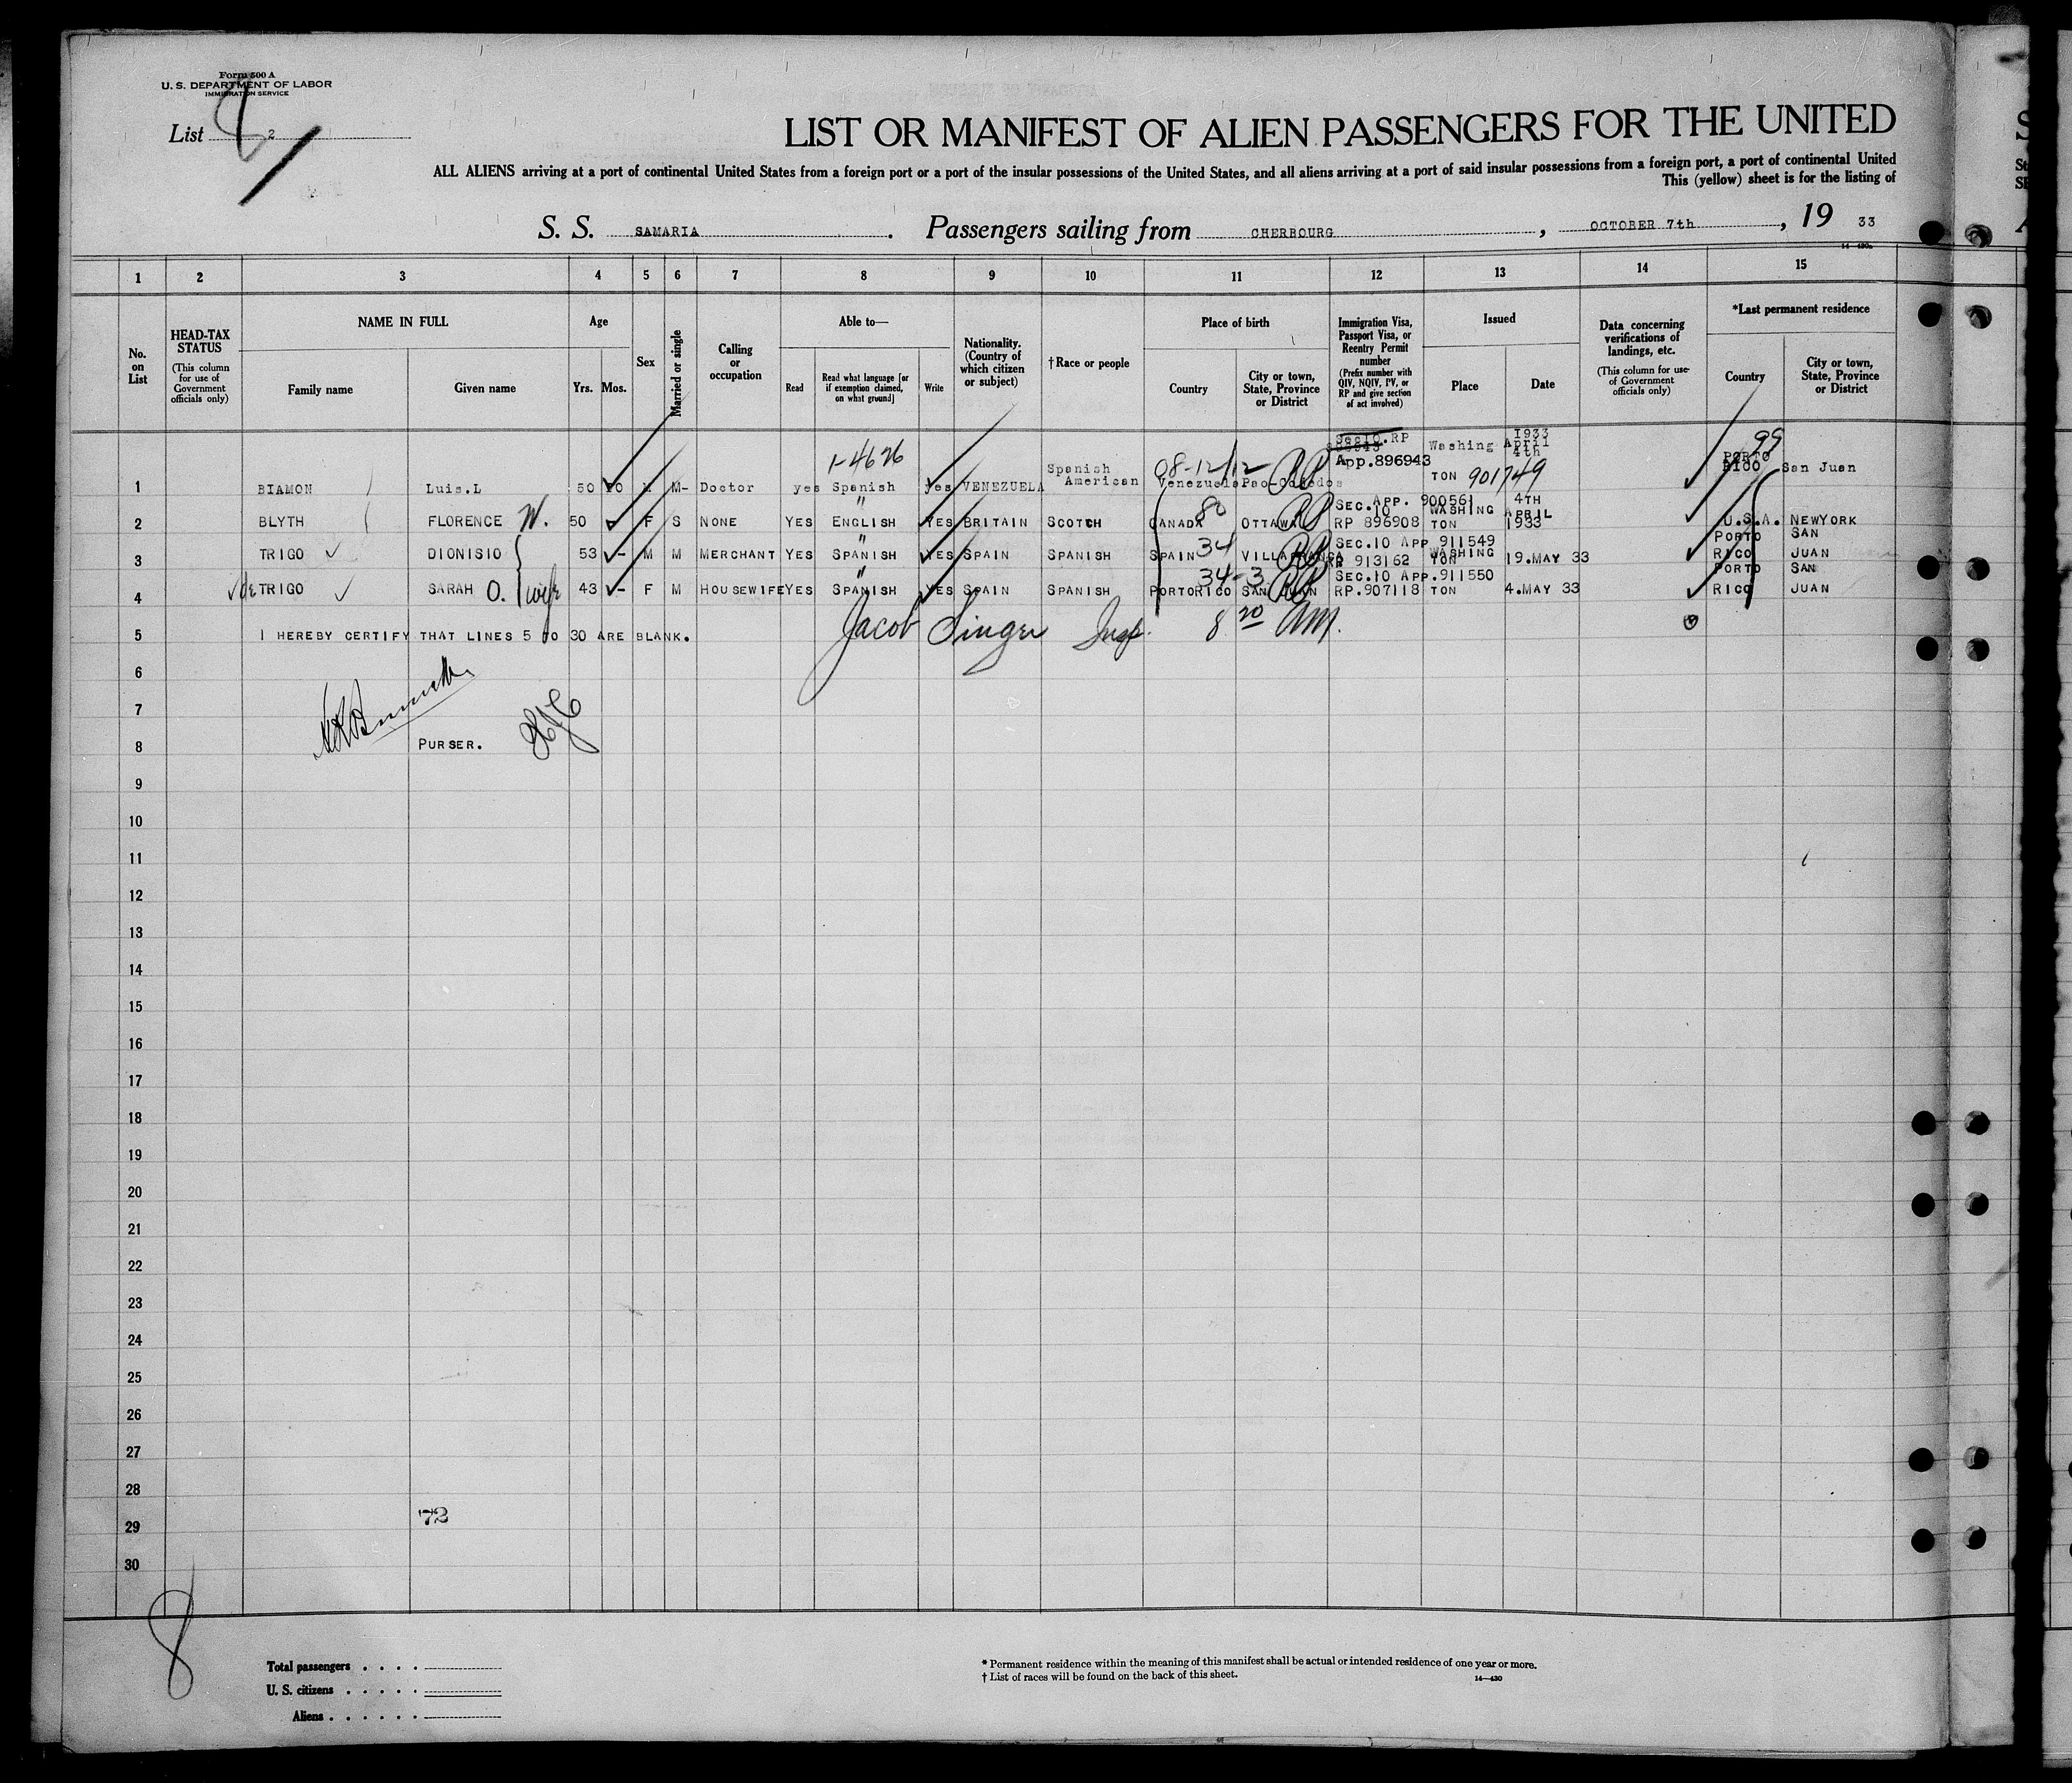 Form 500 A
U. S. DEPARTMENT OF LABOR
IMMIGRATION SERVICE
List 2
8
LIST OR MANIFEST OF ALIEN PASSENGERS FOR THE UNITED
ALL ALIENS arriving at a port of continental United States from a foreign port or a port of the insular possessions of the United States, and all aliens arriving at a port of said insular possessions from a foreign port, a port of continental United
This (yellow) sheet is for the listing of
S. S. SAMARIA . Passengers sailing from CHERBOURG , OCTOBER 7th , 19 33
1 2 3 4 5 6 7 8 9 10 11 12 13 14 15
No. on List
HEAD-TAX STATUS
(This column for use of Government officials only)
NAME IN FULL
Family name Given name
Age
Yrs. Mos.
Sex
Married or single
Calling or occupation
Able to—
Read Read what language [or if exemption claimed, on what ground] Write
Nationality. (Country of which citizen or subject)
†Race or people
Place of birth
Country City or town, State, Province or District
Immigration Visa, Passport Visa, or Reentry Permit number
(Prefix number with QIV, NQIV, PV, or RP and give section of act involved)
Issued
Place Date
Data concerning verifications of landings, etc.
(This column for use of Government officials only)
*Last permanent residence
Country City or town, State, Province or District
1-4626 08-12/12 Sec10.RP App.896943 Washing TON 901749 1933 April 4th 99
1 BIAMON Luis.L 50 10 M- Doctor yes Spanish yes VENEZUELA Spanish American Venezuela PORTO RICO San Juan
2 BLYTH FLORENCE W. 50 - F S NONE YES ENGLISH YES BRITAIN SCOTCH CANADA 80 OTTAWA SEC.10 APP. 900561 RP 896908 WASHING TON 4TH APRIL 1933 U.S.A. NEWYORK
3 TRIGO DIONISIO 53 - M M MERCHANT YES SPANISH YES SPAIN SPANISH SPAIN 34 VILLAFRANCA SEC.10 APP 911549 RP 913162 WASHING TON 19.MAY 33 PORTO RICO SAN JUAN
4 de TRIGO SARAH O. wife 43 - F M HOUSEWIFE YES SPANISH YES SPAIN SPANISH PORTORICO 34-3 SAN JUAN SEC.10 APP.911550 RP.907118 TON 4.MAY 33 PORTO RICO SAN JUAN
5 I HEREBY CERTIFY THAT LINES 5 TO 30 ARE BLANK. Jacob Singer Insp. 8 20 AM.
6
7
8 PURSER.
9
10
11
12
13
14
15
16
17
18
19
20
21
22
23
24
25
26
27
28
72
29
30
8
Total passengers
U. S. citizens
Aliens
* Permanent residence within the meaning of this manifest shall be actual or intended residence of one year or more.
† List of races will be found on the back of this sheet.
14—430